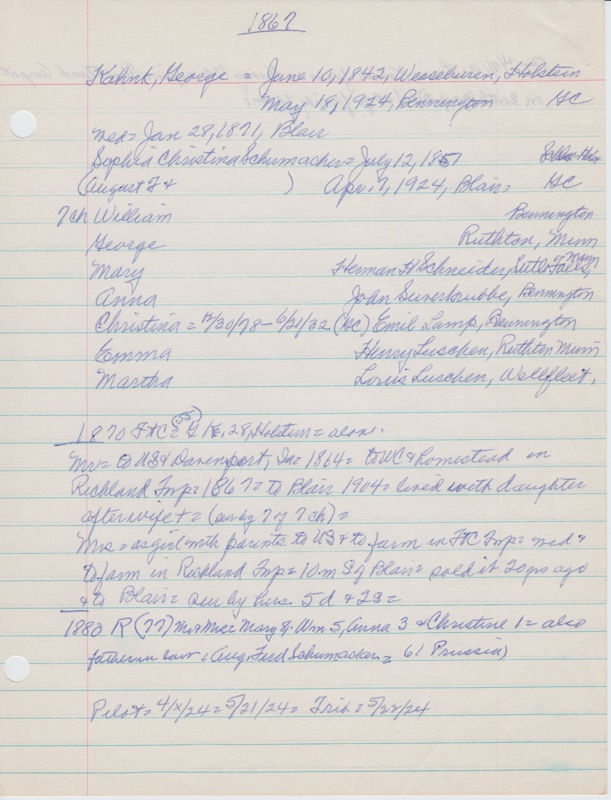 1867
Kahnk, George = June 10, 1842, Wesselburen, Holstein
May 18, 1924, Bennington HC
med = Jan 28, 1871, Blair
Sophia Christina Schumacher = July 12, 1851
(August F & ) Apr. 7, 1924, Blair = HC
7 ch William Bennington
George Ruthton, Minn
Mary Herman H Schneider, Falls, Minn
Anna John Suverkrubbe, Bennington
Christina = 12/30/78 - 6/21/32 (HC) Emil Lamp, Bennington
Emma Henry Luschen, Ruthton Minn
Martha Louis Luschen, Wellfleet,
1870 FTC = (55) G K, 28, Holstein = alone.
Mr = to US & Davenport, Ia = 1864 = to WC & homestead in
Richland Twp = 1867 = to Blair 1904 = lived with daughter
after wife + = (sur by 7 of 7 ch) =
Mrs = as girl with parents to US & to farm in FTC Twp = med &
to farm in Richland Twp = 10 m S of Blair = sold it 20 yrs ago
& to Blair = sur by hus. 5 d & 2 S =
1880 R (77) Mr & Mrs = Mary 8, Wm 5, Anna 3 & Christine 1 = also
father in law = (Aug. Ferd Schumacker = 61 Prussia)
Pilot = 4/ /24 = 5/21/24 = Trib = 5/22/24